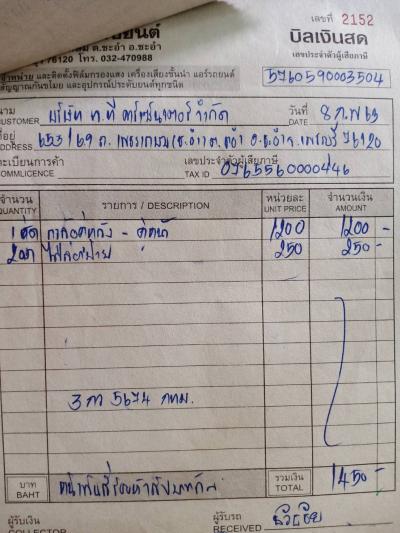 เลขที่ 2152
ยนต์ บิลเงินสด
อ.ชะอำ
76120 โทร. 032-470988 เลขประจำตัวผู้เสียภาษี
และติดตั้งฟิล์มกรองแสง เครื่องเสียงชั้นนำ แอร์รถยนต์ 3760590003504
สัญญาณกันขโมย และอุปกรณ์ประดับยนต์ทุกชนิด
นาม
CUSTOMER บริษัท จำกัด วันที่ DATE 8 ก.พ 69
ที่อยู่
ADDRESS 653/69 ถ.เพชรเกษม ต.ชะอำ อ.ชะอำ จ.เพชรบุรี 76120
ทะเบียนการค้า เลขประจำตัวผู้เสียภาษี
COMMLICENCE TAX ID 0765560000446
จำนวน QUANTITY รายการ / DESCRIPTION หน่วยละ UNIT PRICE จำนวนเงิน AMOUNT
1 ชุด กล้องหลัง - 1200 1200 -
250 250 -
3 กว 5674 กทม.
บาท BAHT หนึ่งพันสี่ร้อยห้าสิบบาทถ้วน รวมเงิน TOTAL 1450 -
ผู้รับเงิน ผู้รับรถ
COLLECTOR RECEIVED